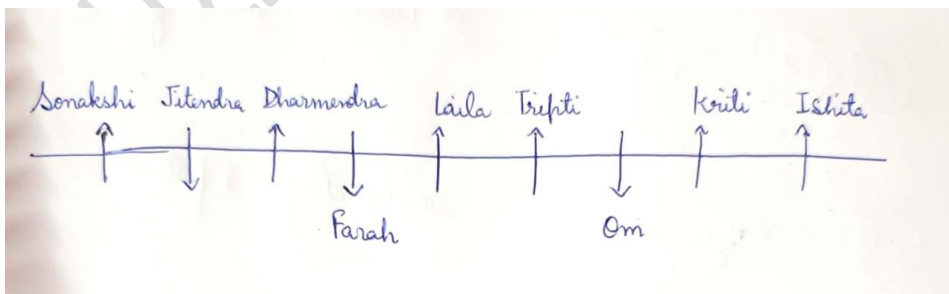 Sonakshi Jitendra Dharmendra Laila Tripti Kriti Ishita
Farah Om